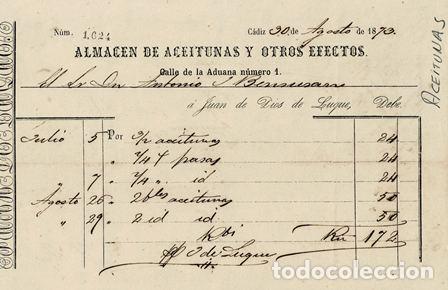 Núm. 1.624 Cádiz 30 de Agosto de 1873.
ACEITUNAS
ALMACEN DE ACEITUNAS Y OTROS EFECTOS.
Calle de la Aduana número 1.
Al Sr Dn Antonio S Bensusan
á Juan de Dios de Luque, Debe.
Julio 5 Por 3/2 aceitunas 24
" 2/4 pasas 24
" 7 " 2/4 " id 24
Agosto 26 " 2 bles aceitunas 50
" 29 " 2 id id 50
Rbi Rvn 172
J de Luque
todocoleccion.net